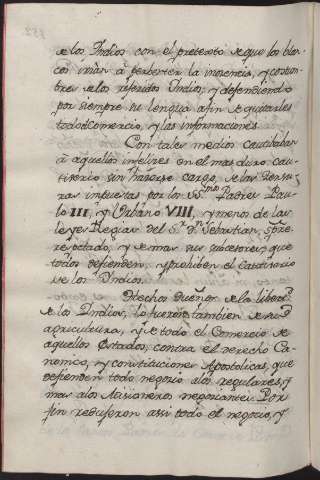 de los Indios con el pretexto de que los blan-
cos irian á perberter la inocencia, y costum-
bres de los referidos Indios, y defendiendo
por siempre su lengua afin de quitarles
todo el comercio, y las informaciones.
Con tales medios cautibaban
à aquellos infelices en el mas duro cau-
tiberio sin hacerse cargo de las Censu-
ras impuestas por los SS.mos Padres Pau-
lo III, y Urbano VIII, y menos de las
leyes Regias del S.r D.n Sebastian,
y de mas sus sucesores, que
todos defienden, y prohiben el Cautiverio
de los Indios.
Hechos Dueños de la libert.d
de los Indios, lo fueron tambien de su
agricultura, y de todo el Comercio de
aquellos Estados, contra el derecho Ca-
nonico, y constituciones Apostolicas, que
defienden todo negocio a los regulares, y
mas a los Misioneros negociantes. Por
fin redujeron assi todo el negocio, y